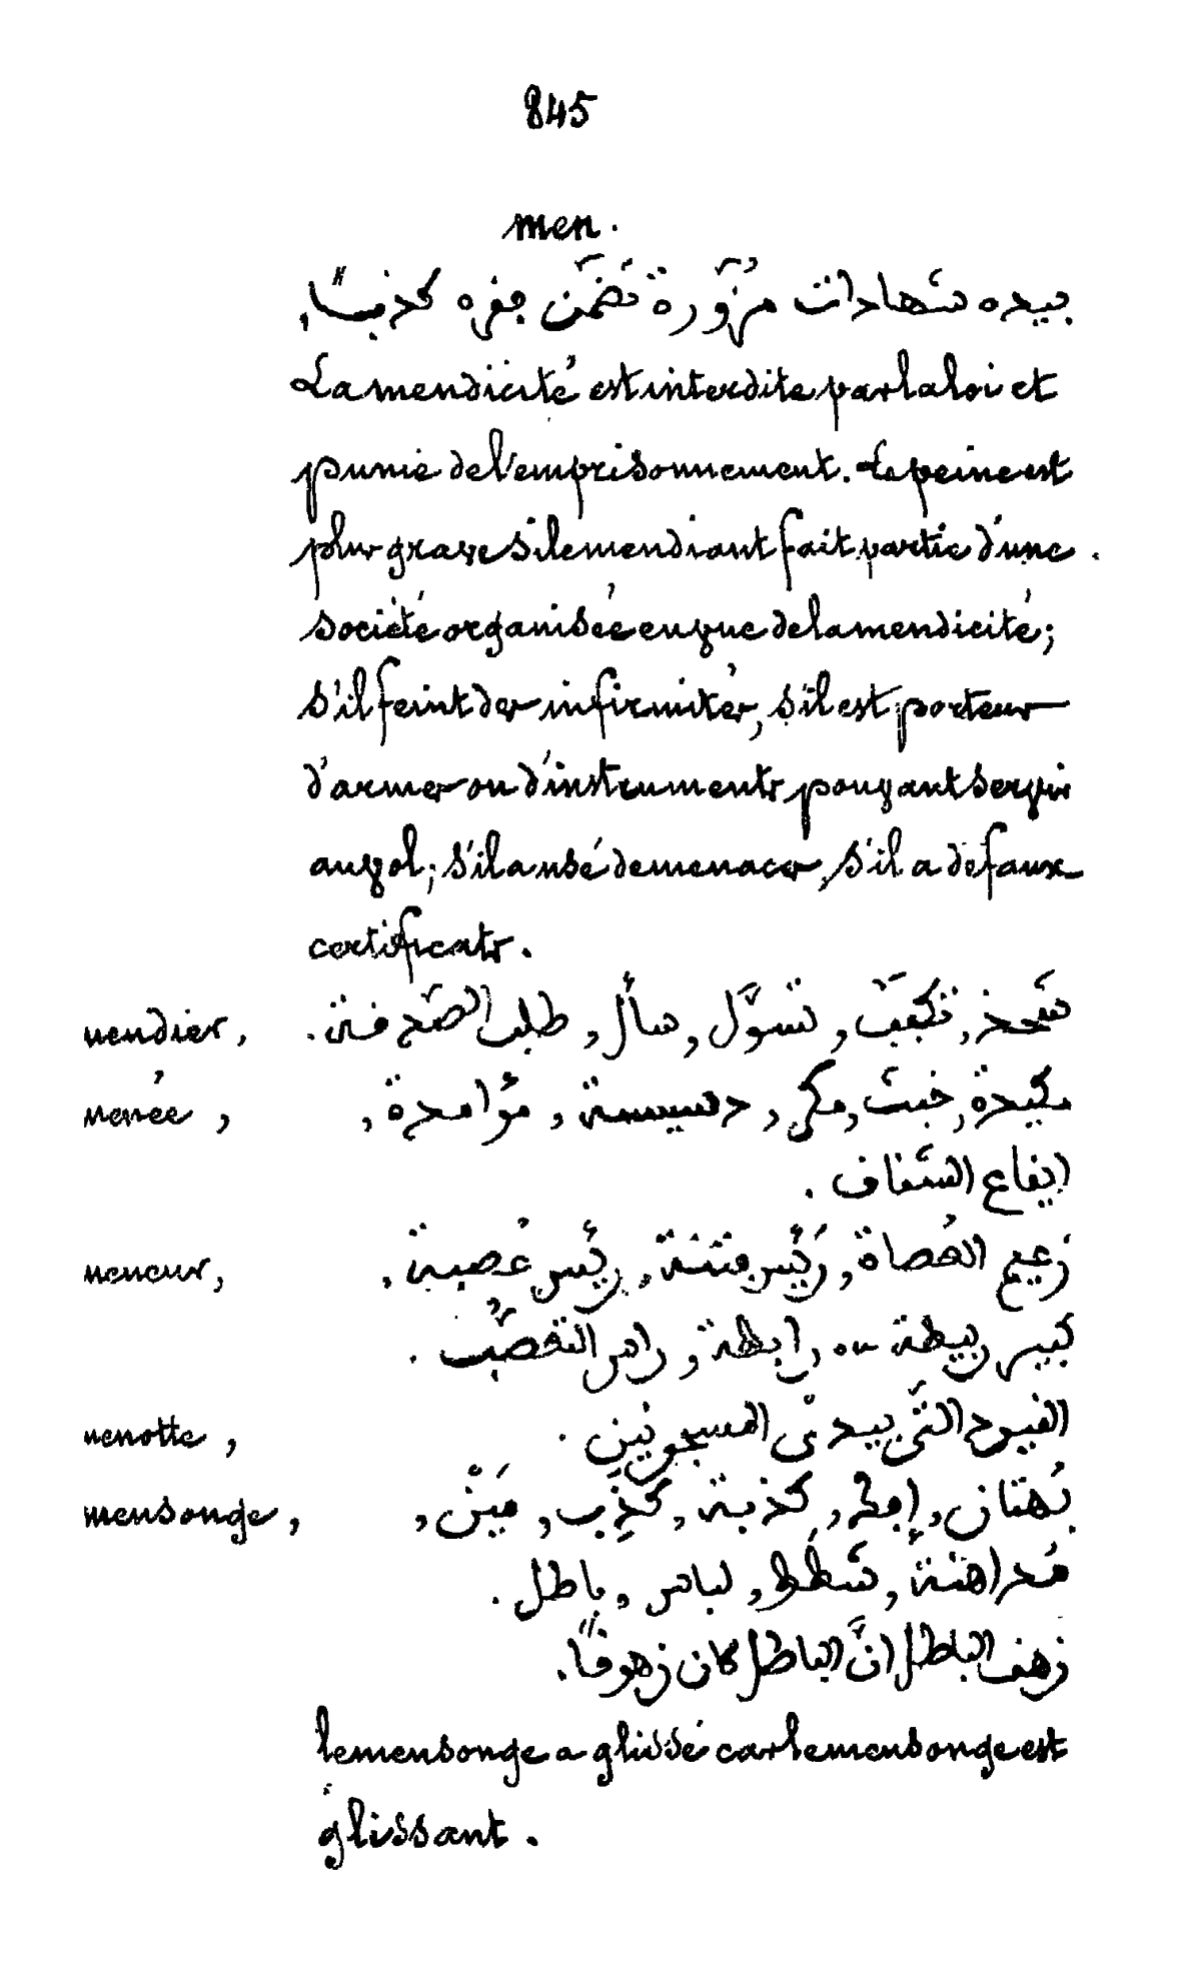 845
men.
بيده شهادات مُزَوَّرة تَضَمَّن فقره كذبًا,
La mendicité est interdite par la loi et
punie de l'emprisonnement. La peine est
plus grave si le mendiant fait partie d'une
société organisée en vue de la mendicité;
s'il feint des infirmités, s'il est porteur
d'armes ou d'instruments pouvant servir
au vol; s'il a usé de menaces, s'il a de faux
certificats.
mendier, شَحَذ, تكفّف, تسوَّل, سأل, طلب الصَّدقة.
menée, مكيدة, خبث, مكر, دسيسة, مؤامرة,
ايقاع الشقاق.
meneur, زعيم العُصاة, رَئيس فتنة, رئيس عُصبة,
كبير ربيطة ou رابطة, راس التعصُّب.
menotte, القيود التَّى بيدىْ المسجونين.
mensonge, بُهتان, إفك, كذبة, كَذِب, مَيْن,
مُداهنة, شَطَط, لباس, باطل.
زهق الباطل انَّ الباطل كان زهوقًا.
le mensonge a glissé car le mensonge est
glissant.